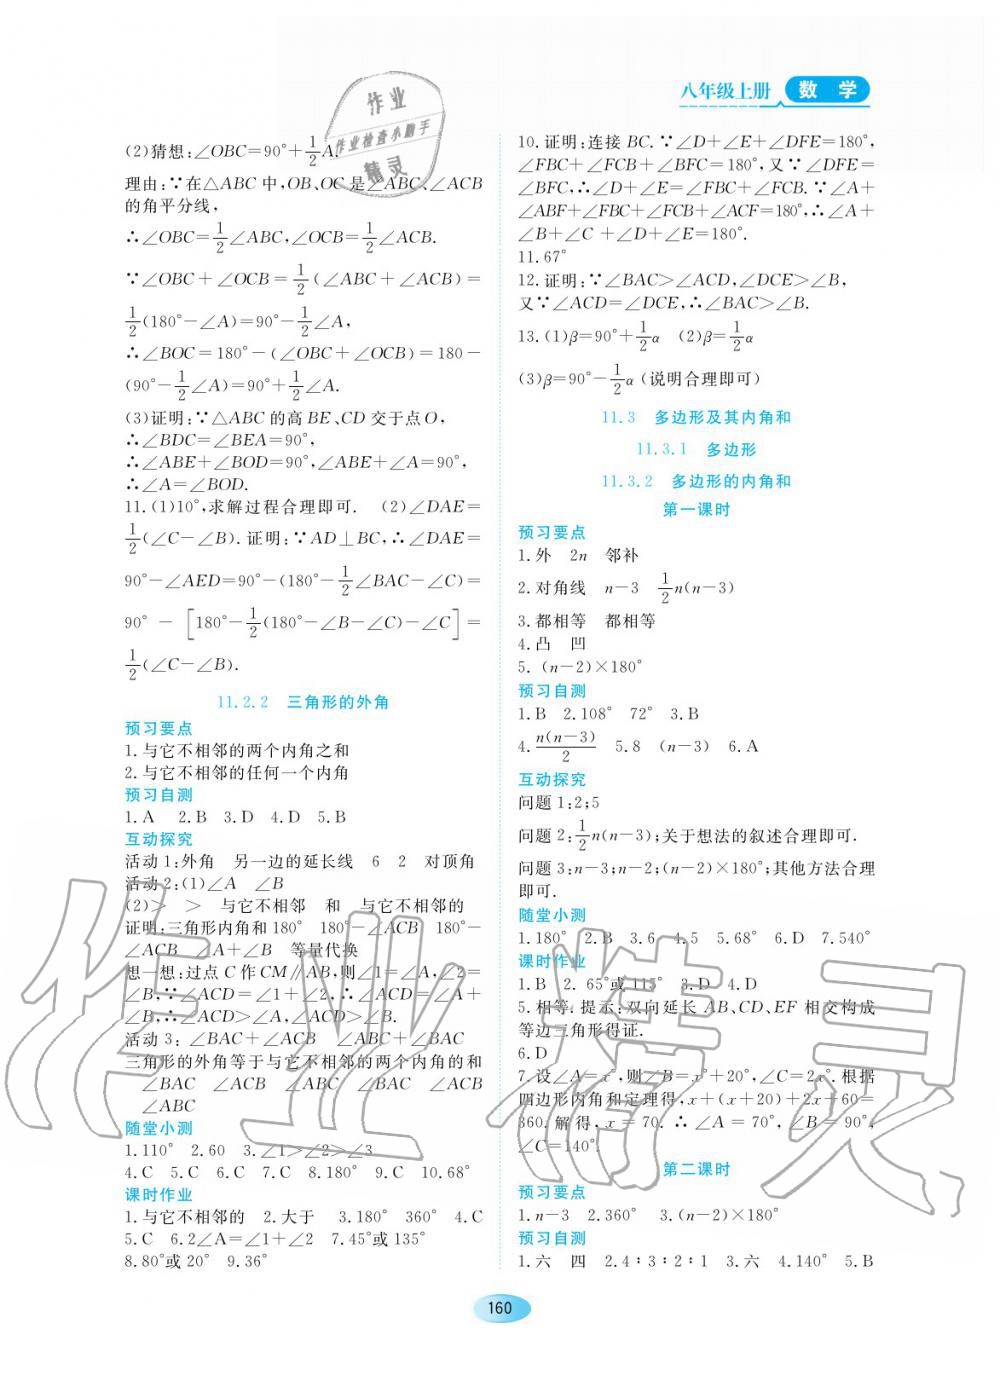 八年级上册 数 学
作业
作业检查小助手
精灵
(2)猜想:∠OBC=90°+1/2A.
理由:∵在△ABC中,OB、OC是∠ABC、∠ACB
的角平分线,
∴∠OBC=1/2∠ABC,∠OCB=1/2∠ACB.
∵∠OBC+∠OCB=1/2(∠ABC+∠ACB)=
1/2(180°-∠A)=90°-1/2∠A,
∴∠BOC=180°-(∠OBC+∠OCB)=180-
(90°-1/2∠A)=90°+1/2∠A.
(3)证明:∵△ABC的高BE、CD交于点O,
∴∠BDC=∠BEA=90°,
∴∠ABE+∠BOD=90°,∠ABE+∠A=90°,
∴∠A=∠BOD.
11.(1)10°,求解过程合理即可. (2)∠DAE=
1/2(∠C-∠B).证明:∵AD⊥BC,∴∠DAE=
90°-∠AED=90°-(180°-1/2∠BAC-∠C)=
90°-[180°-1/2(180°-∠B-∠C)-∠C]=
1/2(∠C-∠B).
11.2.2 三角形的外角
预习要点
1.与它不相邻的两个内角之和
2.与它不相邻的任何一个内角
预习自测
1.A 2.B 3.D 4.D 5.B
互动探究
活动1:外角 另一边的延长线 6 2 对顶角
活动2:(1)∠A ∠B
(2)> > 与它不相邻 和 与它不相邻的
证明:三角形内角和180° 180°-∠ACB 180°-
∠ACB ∠A+∠B 等量代换
想一想:过点C作CM∥AB,则∠1=∠A,∠2=
∠B,∵∠ACD=∠1+∠2,∴∠ACD=∠A+
∠B,∴∠ACD>∠A,∠ACD>∠B.
活动3:∠BAC+∠ACB ∠ABC+∠BAC
三角形的外角等于与它不相邻的两个内角的和
∠BAC ∠ACB ∠ABC ∠BAC ∠ACB
∠ABC
随堂小测
1.110° 2.60 3.∠1>∠2>∠3
4.C 5.C 6.C 7.C 8.180° 9.C 10.68°
课时作业
1.与它不相邻的 2.大于 3.180° 360° 4.C
5.C 6.2∠A=∠1+∠2 7.45°或135°
8.80°或20° 9.36°
10.证明:连接BC.∵∠D+∠E+∠DFE=180°,
∠FBC+∠FCB+∠BFC=180°,又∵∠DFE=
∠BFC,∴∠D+∠E=∠FBC+∠FCB.∵∠A+
∠ABF+∠FBC+∠FCB+∠ACF=180°,∴∠A+
∠B+∠C+∠D+∠E=180°.
11.67°
12.证明:∵∠BAC>∠ACD,∠DCE>∠B,
又∵∠ACD=∠DCE,∴∠BAC>∠B.
13.(1)β=90°+1/2α (2)β=1/2α
(3)β=90°-1/2α(说明合理即可)
11.3 多边形及其内角和
11.3.1 多边形
11.3.2 多边形的内角和
第一课时
预习要点
1.外 2n 邻补
2.对角线 n-3 1/2n(n-3)
3.都相等 都相等
4.凸 凹
5.(n-2)×180°
预习自测
1.B 2.108° 72° 3.B
4.n(n-3)/2 5.8 (n-3) 6.A
互动探究
问题1:2;5
问题2:1/2n(n-3);关于想法的叙述合理即可.
问题3:n-3;n-2;(n-2)×180°;其他方法合理
即可.
随堂小测
1.180° 2.B 3.6 4.5 5.68° 6.D 7.540°
课时作业
1.B 2.65°或115° 3.D 4.D
5.相等.提示:双向延长AB、CD、EF相交构成
等边三角形得证.
6.D
7.设∠A=x°,则∠B=x°+20°,∠C=2x°.根据
四边形内角和定理得,x+(x+20)+2x+60=
360.解得,x=70.∴∠A=70°,∠B=90°,
∠C=140°.
第二课时
预习要点
1.n-3 2.360° 3.(n-2)×180°
预习自测
1.六 四 2.4∶3∶2∶1 3.六 4.140° 5.B
160
作业精灵